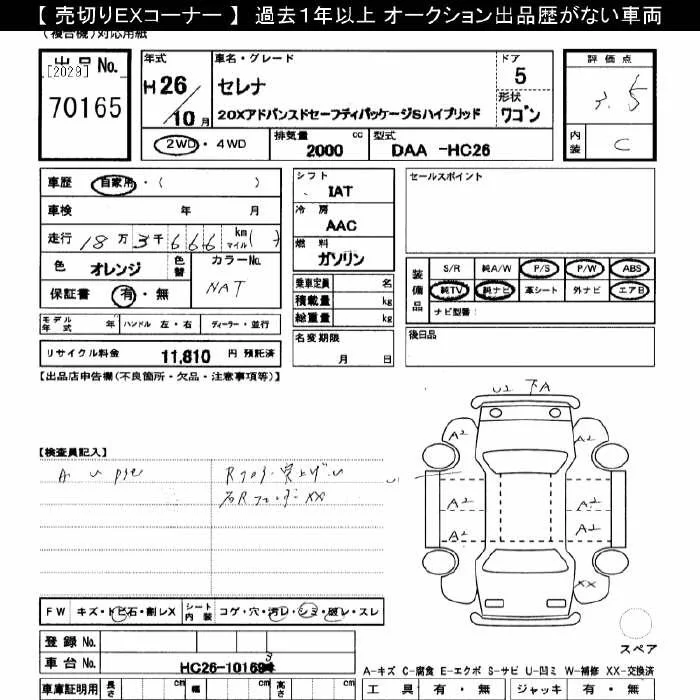 【 売切りEXコーナー 】 過去1年以上 オークション出品歴がない車両
(複合機)対応用紙
出品 No.
[2029]
70165
年式
H 26
10 月
車名・グレード
セレナ
20XアドバンスドセーフティパッケージSハイブリッド
ドア
5
形状
ワゴン
2WD・4WD
排気量
2000 cc
型式
DAA -HC26
評価点
内装
C
車歴
自家用・( )
車検
年 月
走行 18 万 3 千 6 6 6 km
マイル( )
色
オレンジ
色替
カラーNo.
NAT
保証書
有・無
シフト
IAT
冷房
AAC
燃料
ガソリン
乗車定員 名
積載量 kg
総重量 kg
名変期限
月 日
セールスポイント
装備品
S/R 純A/W P/S P/W ABS
純TV 純ナビ 革シート 外ナビ エアB
ナビ型番:
後日品
モデル年式 年
ハンドル 左・右
ディーラー・並行
リサイクル料金 11,810 円 預託済
【出品店申告欄(不良箇所・欠品・注意事項等)】
【検査員記入】
A2
A2
A2
A2
A2
A2
XX
FW キズ・トビ石・割レX
シート内装 コゲ・穴・汚レ・シミ・破レ・スレ
登録 No.
車台 No.
HC26-10169
スペア
A-キズ C-腐食 E-エクボ S-サビ U-凹ミ W-補修 XX-交換済
車庫証明用 長さ cm 幅 cm 高さ cm
工具 有・無 ジャッキ 有・無